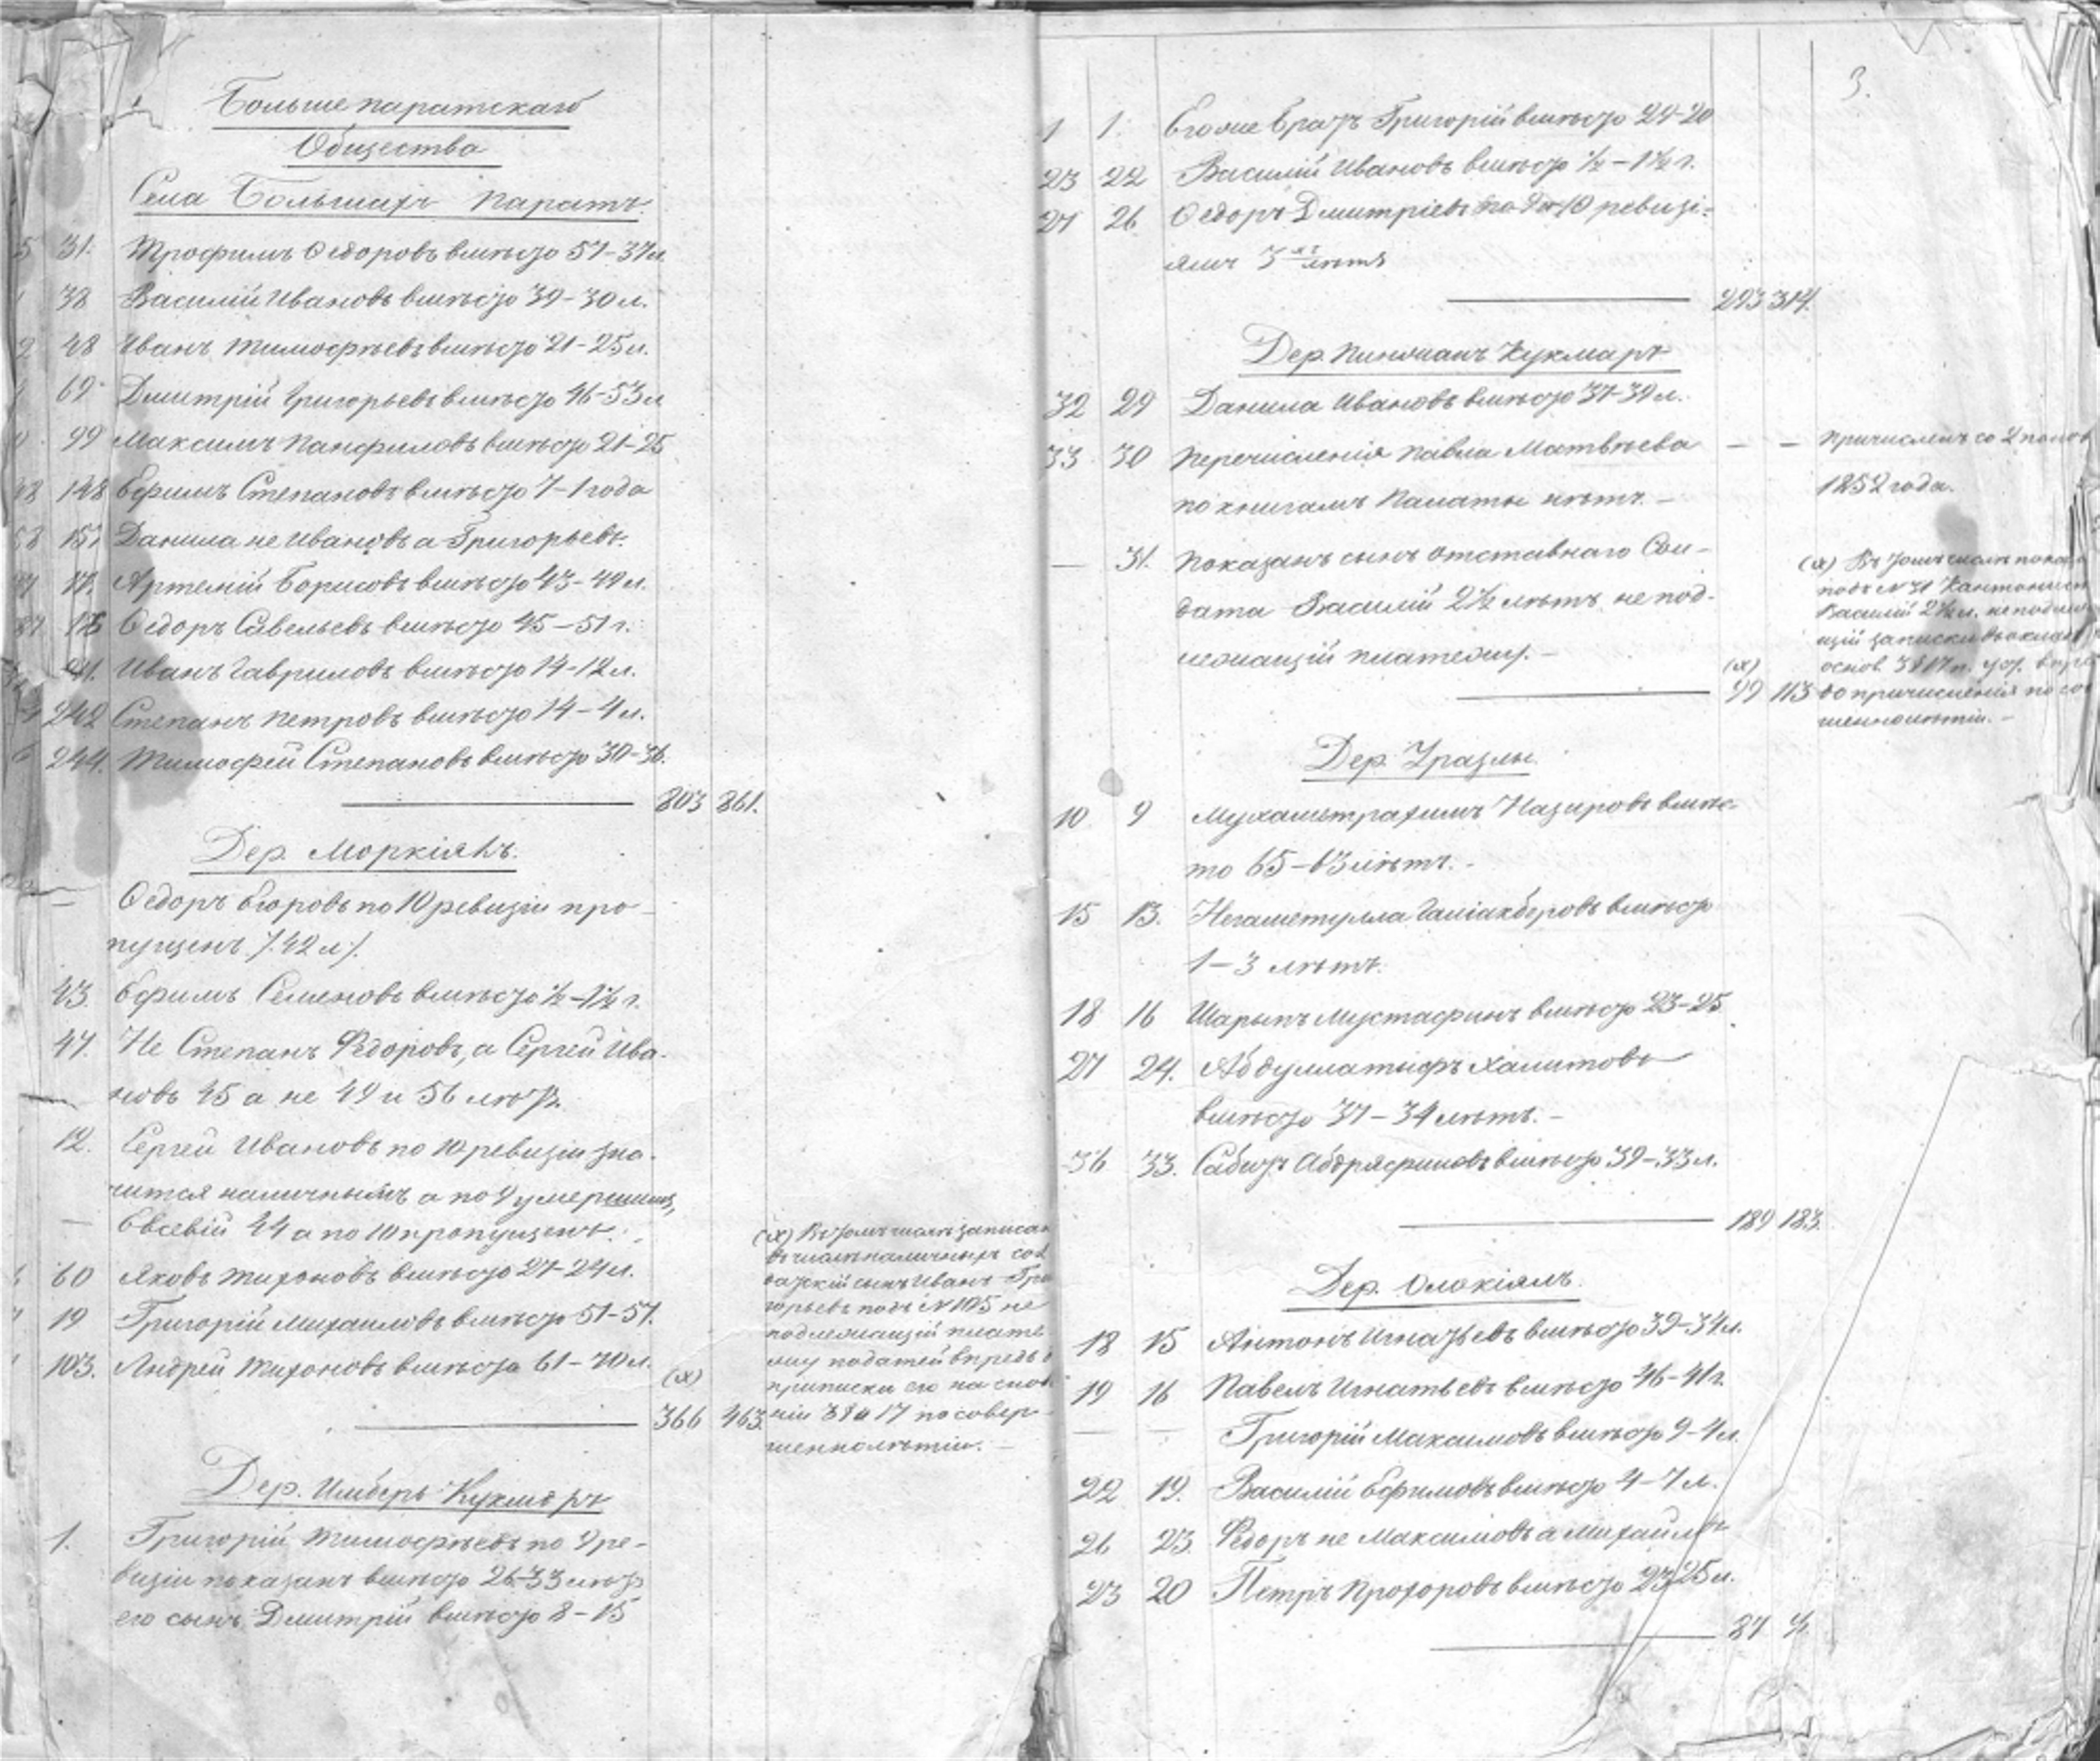 Больше паратскаго
Общества
Села Большихъ Паратъ.
5 31. Трофимъ Ѳедоровъ вмѣсто 57-37 л.
38 Василій Ивановъ вмѣсто 39-30 л.
2 48 Иванъ Тимофѣевъ вмѣсто 21-25 л.
69 Дмитрій Григорьевъ вмѣсто 46-53 л
99 Максимъ Панфиловъ вмѣсто 21-25
148 Ефимъ Степановъ вмѣсто 7-1 года
157 Данила не Ивановъ а Григорьевъ.
Артемій Борисовъ вмѣсто 43-49 л.
Ѳедоръ Савельевъ вмѣсто 45-51 г.
Иванъ Гавриловъ вмѣсто 14-12 л.
242 Степанъ Петровъ вмѣсто 14-4 л.
6 244. Тимофей Степановъ вмѣсто 30-36.
803 861.
Дер. Моркіялъ.
— Ѳедоръ Егоровъ по 10 ревизіи про-
пущенъ /.42 л/.
43. Ефимъ Семеновъ вмѣсто ½-1½ г.
47. Не Степанъ Ѳедоровъ, а Сергей Ива-
новъ 45 а не 49 и 56 лѣтъ.
12. Сергей Ивановъ по 10 ревизіи зна-
чится наличнымъ а по 9 умершимъ,
— Евсевій 44 а по 10 пропущенъ.
60 Яковъ Тихоновъ вмѣсто 27-24 л.
19 Григорій Михаиловъ вмѣсто 51-57.
103. Андрей Тихоновъ вмѣсто 61-70 л.
(х)
366 463.
(х) Въ томъ числѣ записан
въ числѣ наличныхъ сол
датскій сынъ Иванъ Гри
горьевъ подъ № 105 не
подлежащій плате
жу податей впредь
приписки его на
17 по совер-
шеннолѣтіи. —
Дер. Имберь Кукмаръ
1. Григорій Тимофѣевъ по 9 ре-
визіи показанъ вмѣсто 26-33 лѣтъ
его сынъ Дмитрій вмѣсто 8-15
3.
1 1. Его же братъ Григорій вмѣсто 24-20
23 22 Василій Ивановъ вмѣсто ½-1½ г.
27 26 Ѳедоръ Дмитріевъ по 9 и 10 ревизі-
ямъ 3хъ лѣтъ
293 314.
Дер. Пинжанъ Кукмаръ
32 29 Данила Ивановъ вмѣсто 37-39 л.
33 30 Перечисленія Павла Матвѣева — —
по книгамъ Палаты нѣтъ. —
Причисленъ со 2 полов
1852 года.
— 31. Показанъ сынъ отставнаго Сол-
дата Василій 2½ лѣтъ, не под-
лежащій платежу. —
(х)
99 113
(х) Въ томъ числѣ показ
подъ № 31 Кантонист
Василій 2½ л. неподлежа
щій записки въ окладъ
основ. 17 п. уст.
до причисленія по со
шеннолѣтіи. —
Дер. Уразлы.
10 9 Мухаметрахимъ Назировъ вмѣс-
то 65-63 лѣтъ. -
15 13. Негаметулла Галіакберовъ вмѣсто
1-3 лѣтъ.
18 16 Шарыпъ Мустафинъ вмѣсто 23-25
27 24. Абдуллатыфъ Халитовъ
вмѣсто 37-34 лѣтъ. -
36 33. Сабитъ Абдряфиковъ вмѣсто 39-33 л.
189 183.
Дер. Олокіялъ.
18 15 Антонъ Игнатьевъ вмѣсто 39-34 л.
19 16 Павелъ Игнатьевъ вмѣсто 46-41 г.
— — Григорій Максимовъ вмѣсто 9-4 л.
22 19. Василій Ефимовъ вмѣсто 4-7 л.
26 23. Ѳедоръ не Максимовъ а Михайлъ
23 20 Петръ Прохоровъ вмѣсто 23-25 л.
87